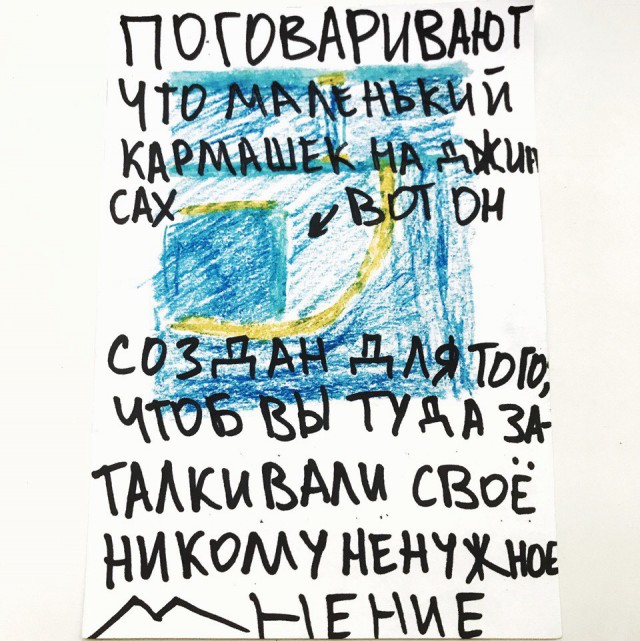 ПОГОВАРИВАЮТ
ЧТО МАЛЕНЬКИЙ
КАРМАШЕК НА ДЖИН
САХ ВОТ ОН
СОЗДАН ДЛЯ ТОГО,
ЧТОБ ВЫ ТУДА ЗА-
ТАЛКИВАЛИ СВОЁ
НИКОМУ НЕНУЖНОЕ
МНЕНИЕ